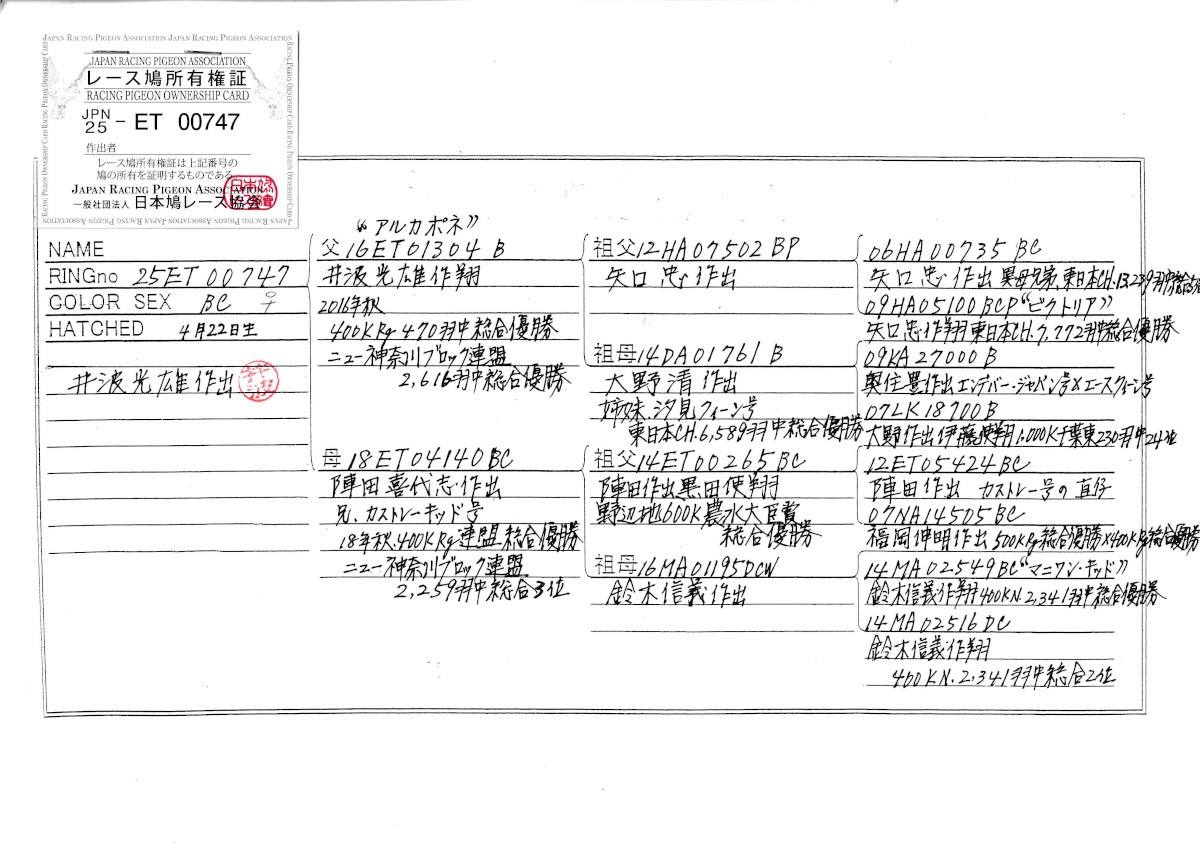 JAPAN RACING PIGEON ASSOCIATION JAPAN RACING PIGEON ASSOCIATION
JAPAN RACING PIGEON ASSOCIATION
レース鳩所有権証
RACING PIGEON OWNERSHIP CARD
JPN
25 - ET 00747
作出者
レース鳩所有権証は上記番号の
鳩の所有を証明するものである。
JAPAN RACING PIGEON ASSOCIATION
一般社団法人 日本鳩レース協会
NAME
RINGno 25ET00747
COLOR SEX BC ♀
HATCHED 4月22日生
井波光雄作出
“アルカポネ”
父 16ET01304 B
井波光雄作翔
2016年秋
400K Rg 470羽中総合優勝
ニュー神奈川ブロック連盟
2,616羽中総合優勝
母 18ET04140 BC
陣田喜代志作出
兄、カストレーキッド号
18年秋、400K Rg連盟総合優勝
ニュー神奈川ブロック連盟
2,259羽中総合3位
祖父 12HA07502 BP
矢口忠作出
祖母 14DA01761 B
大野清作出
姉妹、汐見クィーン号
東日本CH.6,589羽中総合優勝
祖父 14ET00265 BC
陣田作出黒田使翔
野辺地600K農水大臣賞
総合優勝
祖母 16MA01195 DCW
鈴木信義作出
06HA00735 BC
矢口忠作出 異母兄弟、東日本CH.13,239羽中総合
09HA05100 BCP“ビクトリア”
矢口忠作翔東日本CH.7,772羽中総合優勝
09KA27000 B
奥住豊作出エンデバー・ジャパン号×エースクィーン号
07LK18700 B
大野作出伊藤使翔1,000K千葉東230羽中24位
12ET05424 BC
陣田作出 カストレー号の直仔
07NA14505 BC
福岡伸明作出500Kg総合優勝×400Kg総合優勝
14MA02549 BC“マニワン・キッド”
鈴木信義作翔400KN.2,341羽中総合優勝
14MA02516 DC
鈴木信義作翔
400KN.2,341羽中総合2位